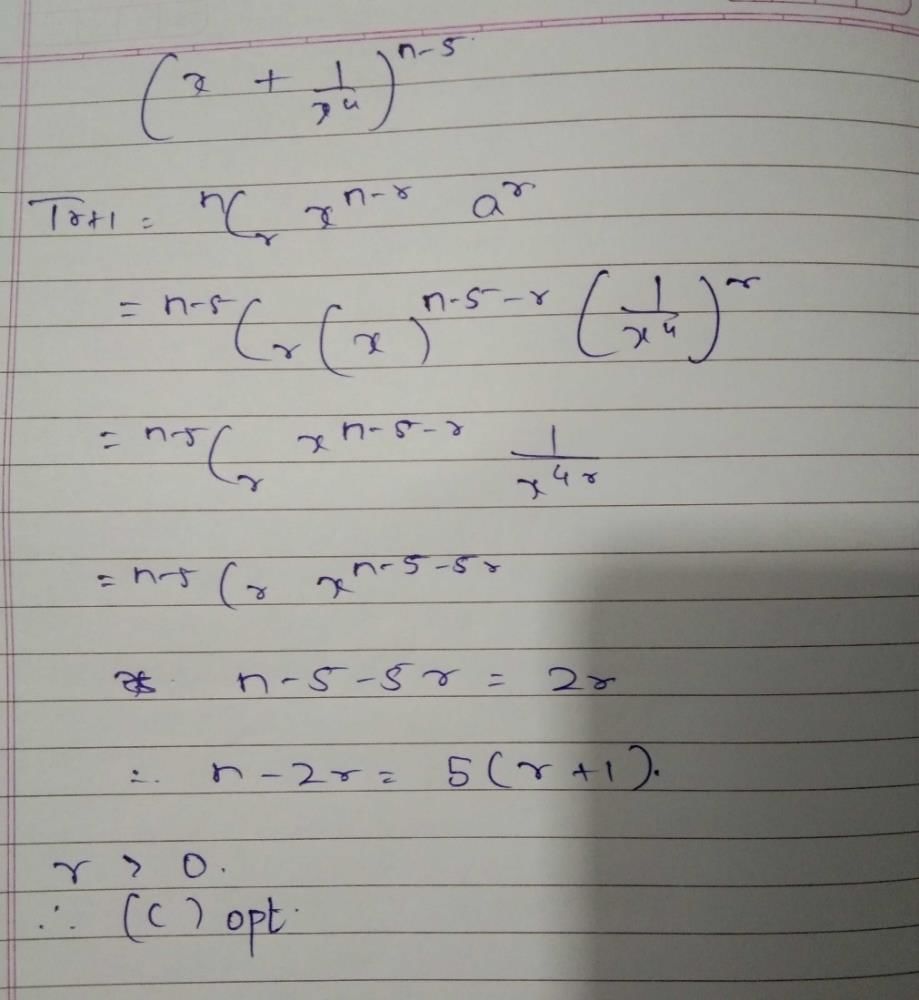 (x + 1/x⁴)ⁿ⁻⁵
Tr+1 = ⁿCr xⁿ⁻ʳ aʳ
= ⁿ⁻⁵Cr (x)ⁿ⁻⁵⁻ʳ (1/x⁴)ʳ
= ⁿ⁻⁵Cr xⁿ⁻⁵⁻ʳ 1/x⁴ʳ
= ⁿ⁻⁵Cr xⁿ⁻⁵⁻⁵ʳ
n-5-5r = 2r
∴ n-2r = 5(r+1).
r > 0.
∴ (C) opt.